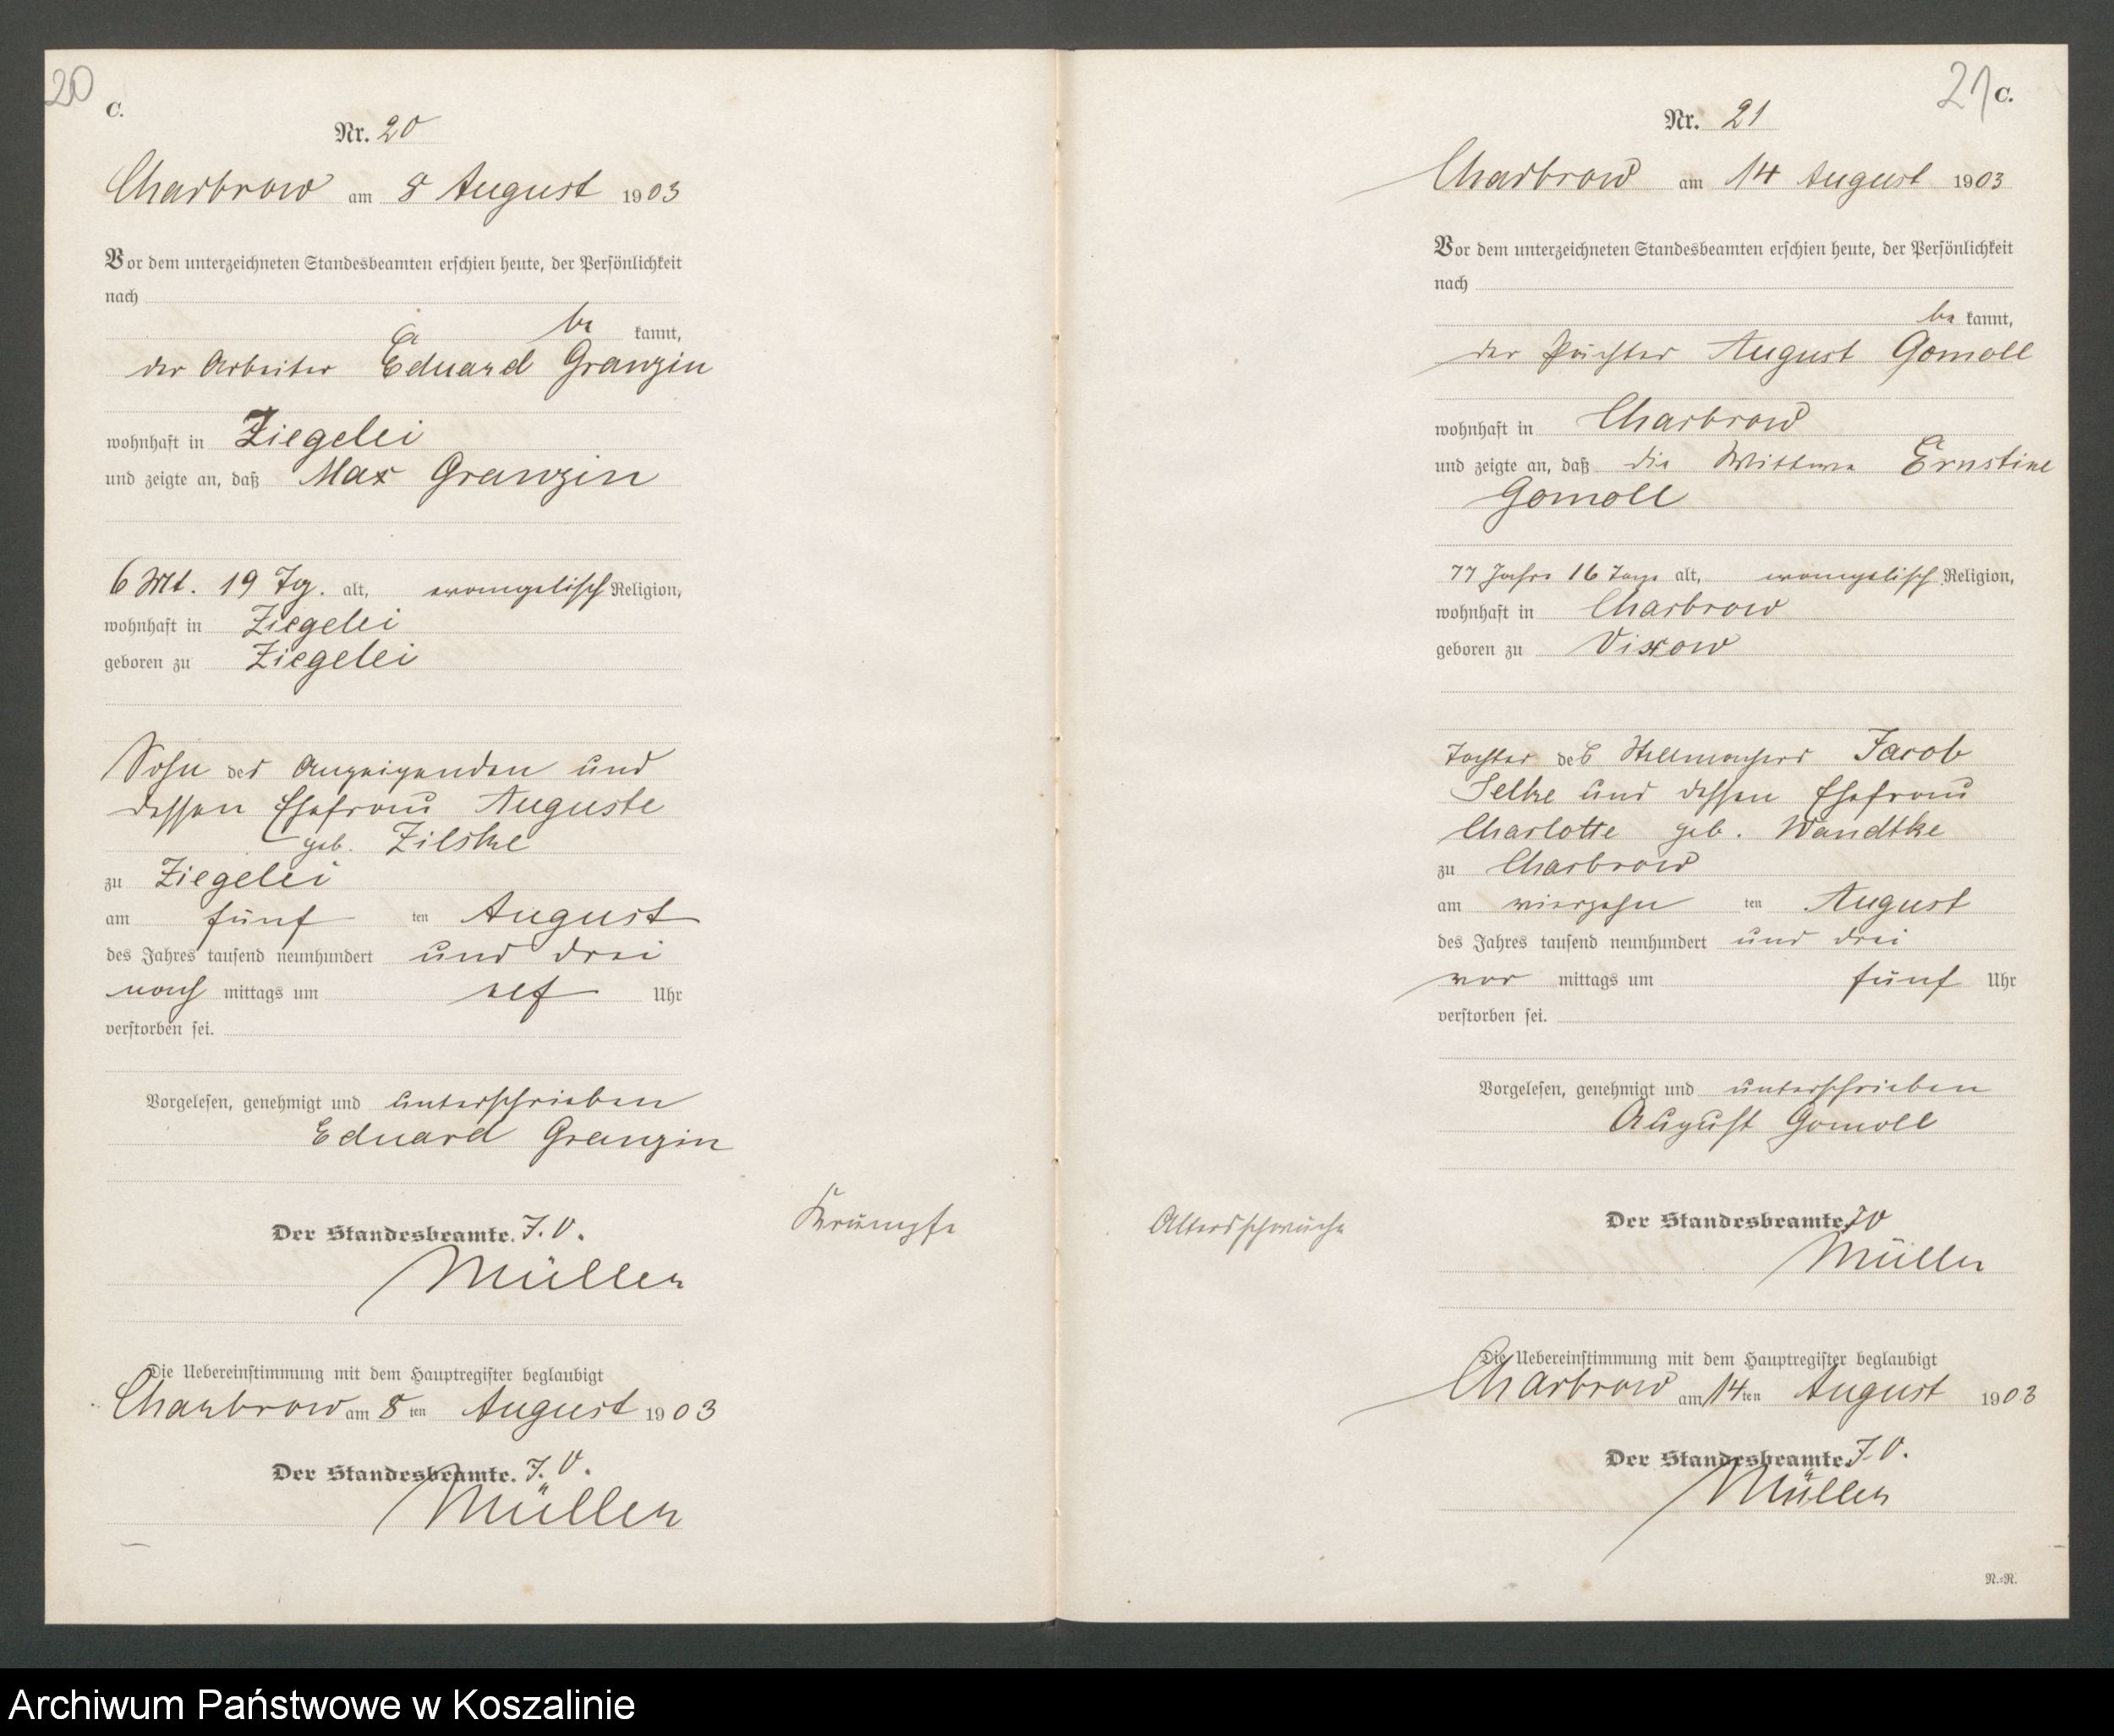 20
C.
Nr. 20
Charbrow am 8 August 1903
Vor dem unterzeichneten Standesbeamten erschien heute, der Persönlichkeit
nach
be kannt,
der Arbeiter Eduard Granzin
wohnhaft in Ziegelei
und zeigte an, daß Max Granzin
6 Mt. 19 Tg. alt, evangelisch Religion,
wohnhaft in Ziegelei
geboren zu Ziegelei
Sohn des Anzeigenden und
dessen Ehefrau Auguste
geb. Zilske
zu Ziegelei
am fünf ten August
des Jahres tausend neunhundert und drei
nach mittags um elf Uhr
verstorben sei.
Vorgelesen, genehmigt und unterschrieben
Eduard Granzin
Der Standesbeamte. J. V.
Müller
Krämpfe
Die Uebereinstimmung mit dem Hauptregister beglaubigt
Charbrow am 8 ten August 1903
Der Standesbeamte. J. V.
Müller
21 C.
Nr. 21
Charbrow am 14 August 1903
Vor dem unterzeichneten Standesbeamten erschien heute, der Persönlichkeit
nach
be kannt,
der Pächter August Gomoll
wohnhaft in Charbrow
und zeigte an, daß die Wittwe Ernstine
Gomoll
77 Jahre 16 Tage alt, evangelisch Religion,
wohnhaft in Charbrow
geboren zu Vixow
Tochter des Stellmachers Jacob
Selke und dessen Ehefrau
Charlotte geb. Wandtke
zu Charbrow
am vierzehn ten August
des Jahres tausend neunhundert und drei
vor mittags um fünf Uhr
verstorben sei.
Vorgelesen, genehmigt und unterschrieben
August Gomoll
Altersschwäche
Der Standesbeamte. J V
Müller
Die Uebereinstimmung mit dem Hauptregister beglaubigt
Charbrow am 14 ten August 1903
Der Standesbeamte. J. V.
Müller
R.=R.
Archiwum Państwowe w Koszalinie